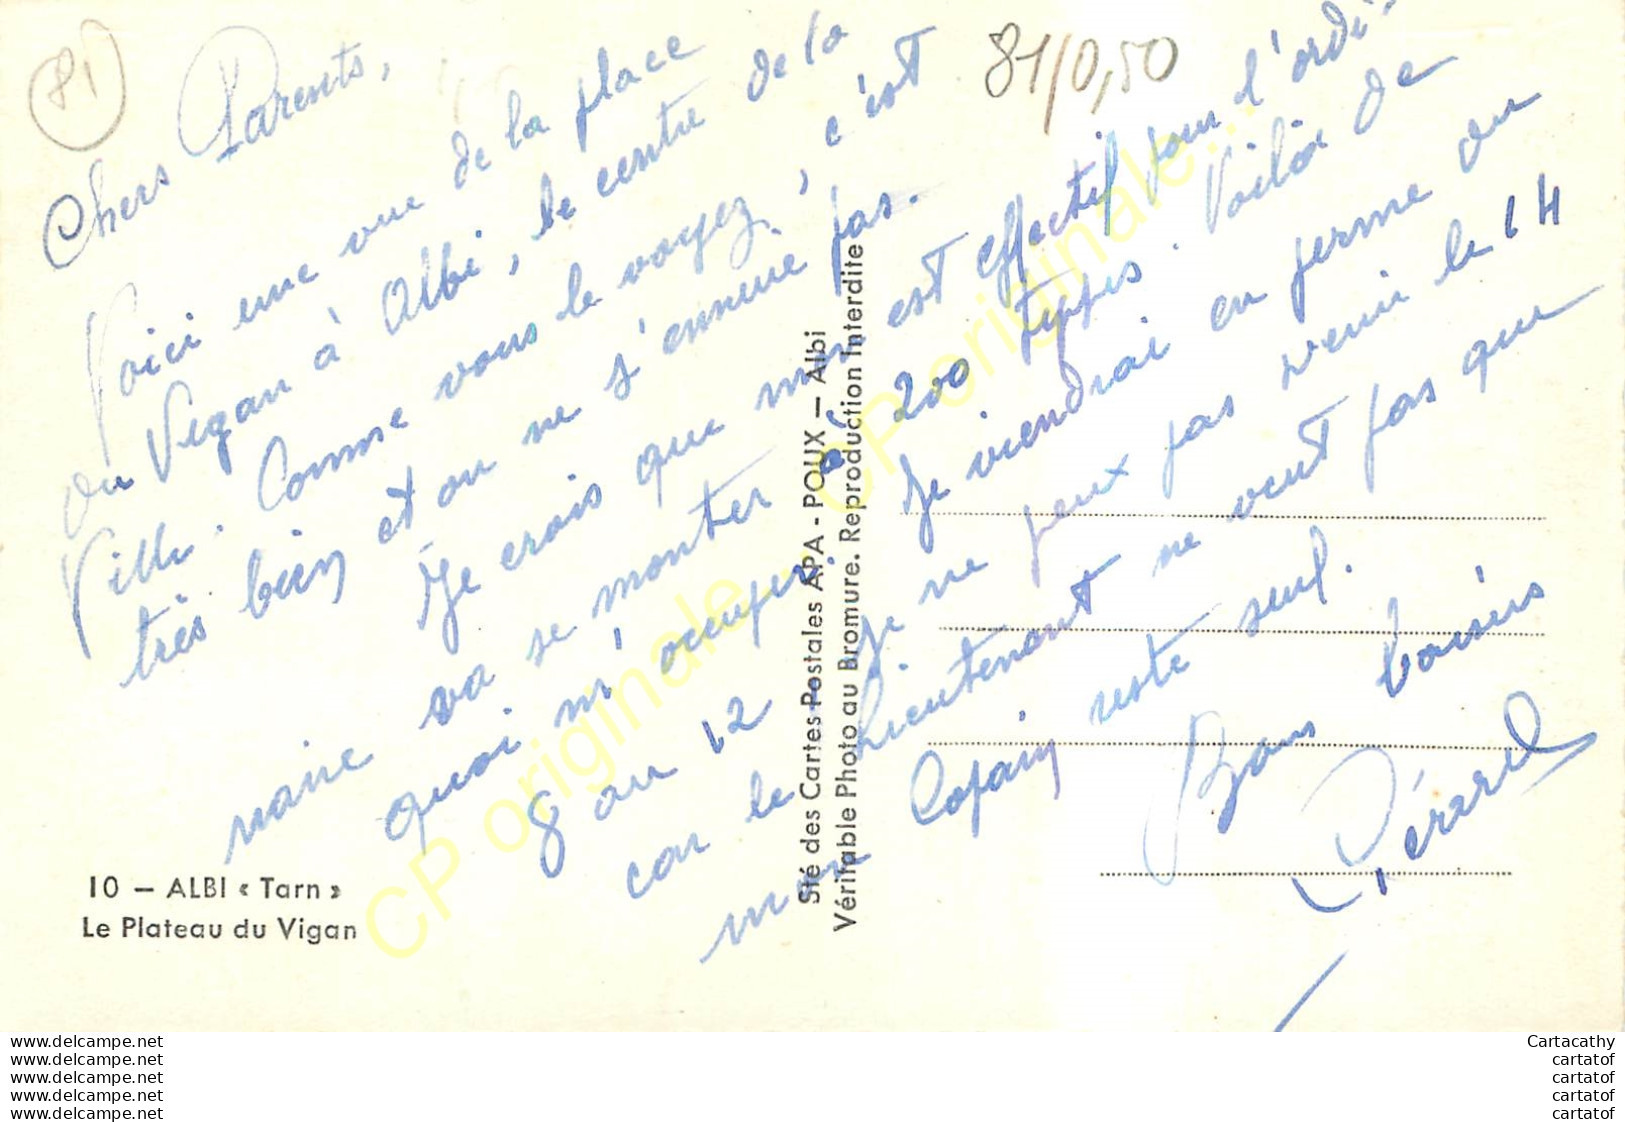 81
81/0,50
Chers Parents,
Voici une vue de la place
du Vigan à Albi, le centre de la
Ville. Comme vous le voyez, c'est
très bien et on ne s'ennuie pas.
Je crois que mon est effectif pour l'ordi-
naire va se monter à 200 types. Voilà de
quoi m'occuper. Je viendrai en ferme du
8 au 12. Je ne peux pas venir le 14
car le Lieutenant ne veut pas que
mon Copain reste seul.
Bons baisirs
Gérard
10 – ALBI « Tarn »
Le Plateau du Vigan
Sté des Cartes Postales APA - POUX – Albi
Véritable Photo au Bromure. Reproduction Interdite
CP originale... CP originale...
www.delcampe.net Cartacathy
www.delcampe.net cartatof
www.delcampe.net cartatof
www.delcampe.net cartatof
www.delcampe.net cartatof